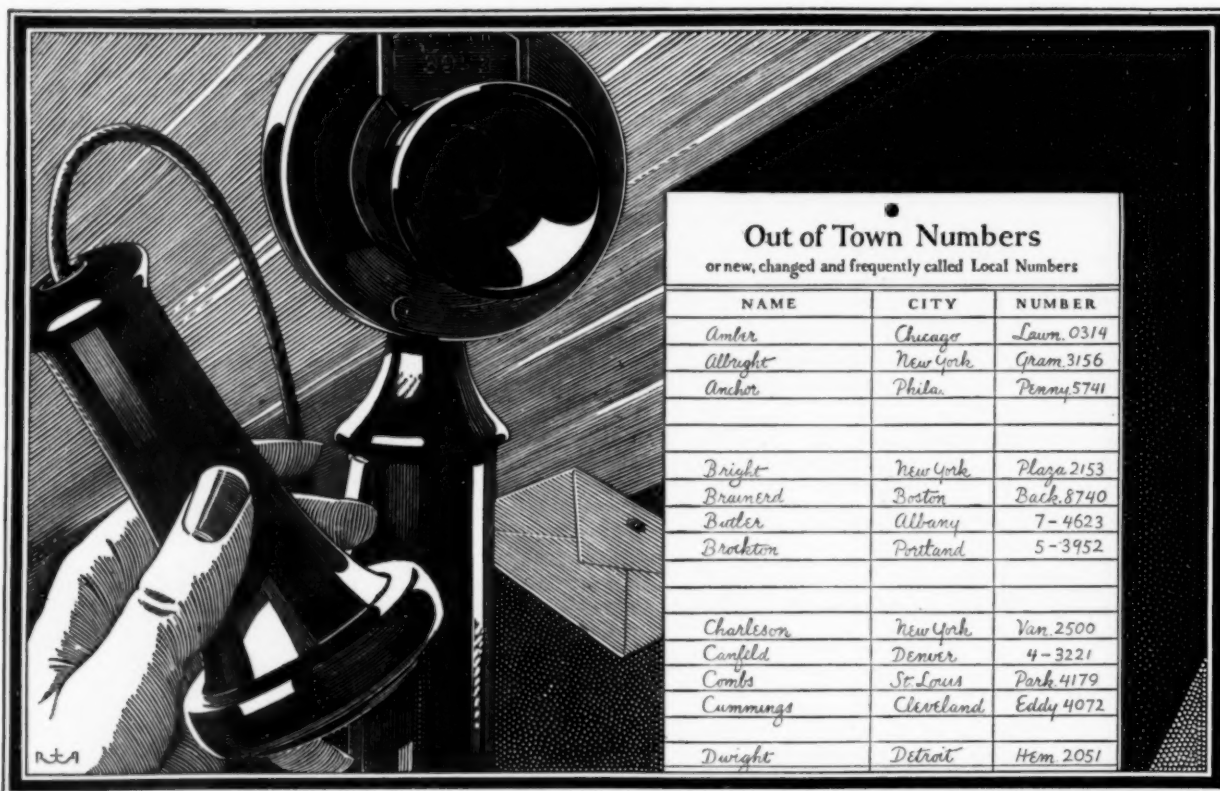 Out of Town Numbers
or new, changed and frequently called Local Numbers
NAME CITY NUMBER
Amber Chicago Lawn. 0314
Albright New York Gram. 3156
Anchor Phila. Penny. 5741
Bright New York Plaza 2153
Brainerd Boston Back. 8740
Butler Albany 7-4623
Brockton Portland 5-3952
Charleson New York Van. 2500
Canfild Denver 4-3221
Combs St. Louis Park. 4179
Cummings Cleveland Eddy 4072
Dwight Detroit Hem. 2051
R A